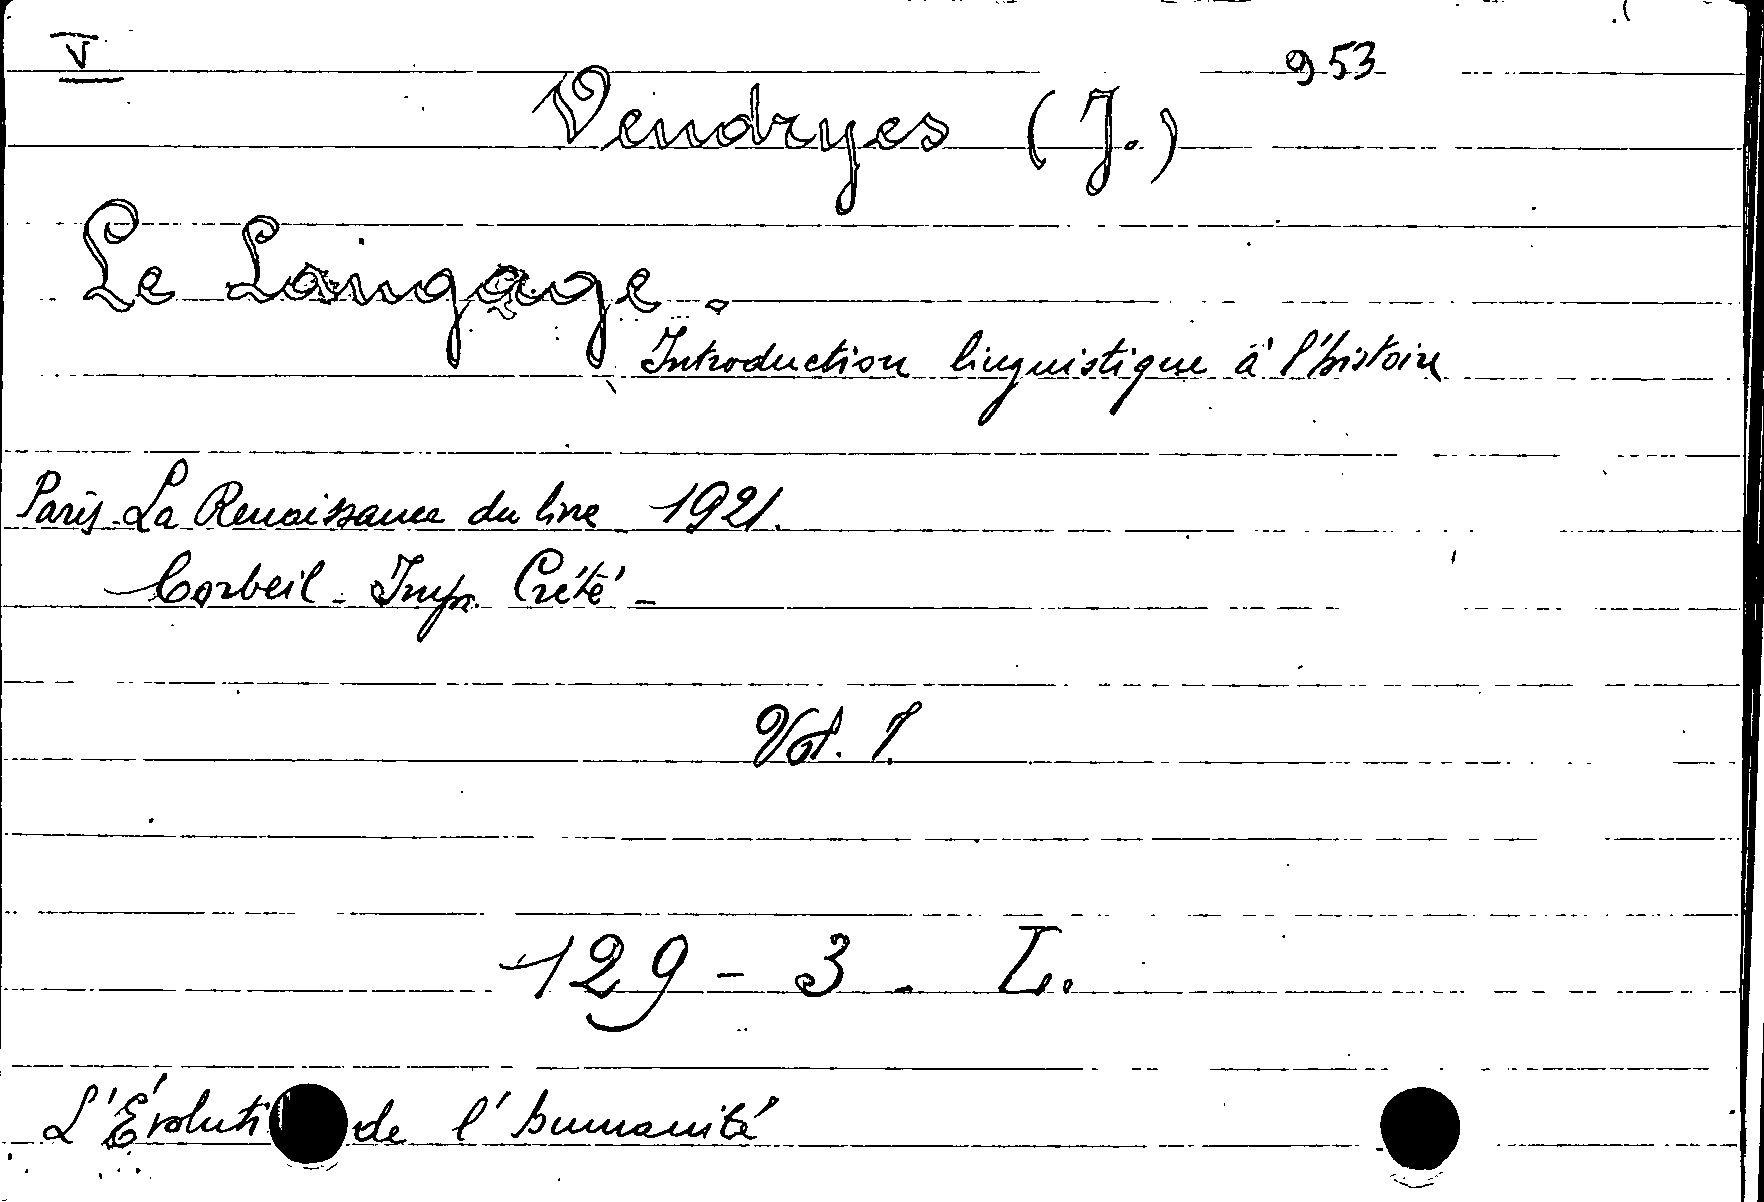 V
953
Vendryes (J.)
Le Langage.
Introduction linguistique à l'histoire
Paris. La Renaissance du livre 1921.
Corbeil - Imp. Crété -
Vol. I.
129 - 3 - L.
L'Évoluti de l'humanité